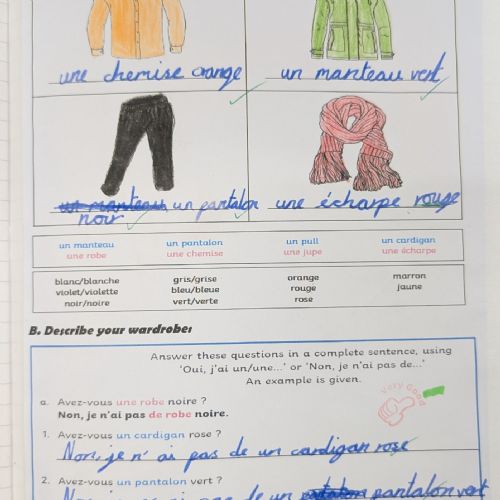 une chemise orange
un manteau vert
un manteau un pantalon
noir
une écharpe rouge
un manteau un pantalon un pull un cardigan
une robe une chemise une jupe une écharpe
blanc/blanche gris/grise orange marron
violet/violette bleu/bleue rouge jaune
noir/noire vert/verte rose
B. Describe your wardrobe:
Answer these questions in a complete sentence, using
'Oui, j'ai un/une...' or 'Non, je n'ai pas de...'
An example is given.
Very Good
a. Avez-vous une robe noire ?
Non, je n'ai pas de robe noire.
1. Avez-vous un cardigan rose ?
Non, je n'ai pas de un cardigan rose
2. Avez-vous un pantalon vert ?
de un pantalon vert